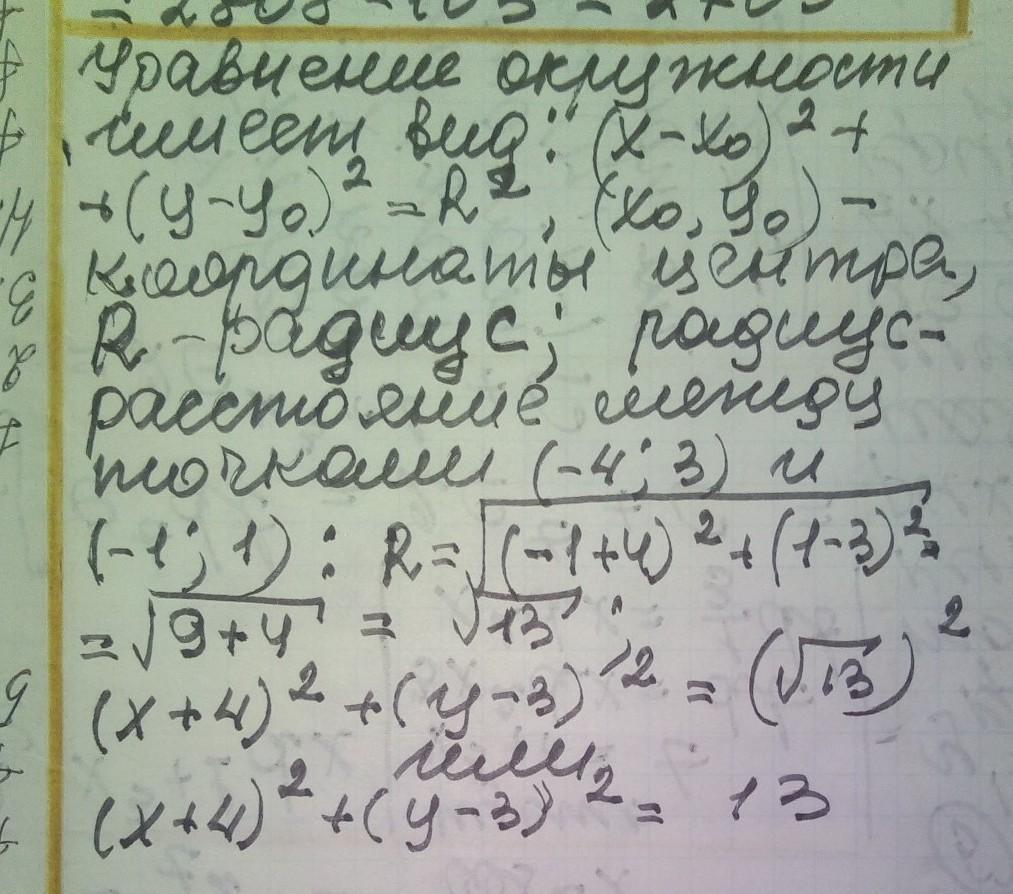 = 2808 - 103 = 2705
Уравнение окружности
имеет вид: (x-x₀)² +
+(y-y₀)² = R², (x₀, y₀) -
координаты центра,
R - радиус; радиус-
расстояние между
точками (-4; 3) и
(-1; 1) : R = √((-1+4)² + (1-3)²) =
= √(9+4) = √13 ;
(x+4)² + (y-3)² = (√13)²
или
(x+4)² + (y-3)² = 13